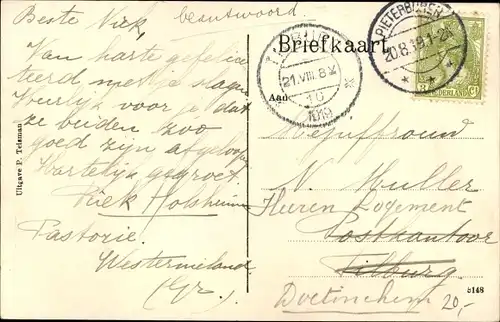 Beste Niek, beantwoord.
Van harte gefelici
teerd met je slagen
Heerlijk voor je dat
ze beiden zoo
goed zijn afgeloopen
Hartelijk gegroet
Riek Holsheimer
Pastorie.
Westernieland
(Gr.)
Uitgave P. Telsman
Briefkaart
Aan
TILBURG
21.VIII.8 V
10
1919
PIETERBUREN
20.8.19.1-2N
NEDERLAND
Mejuffrouw
N. Muller
Heeren Logement
Postkantoor
Tilburg
Doetinchem
20,-
8148